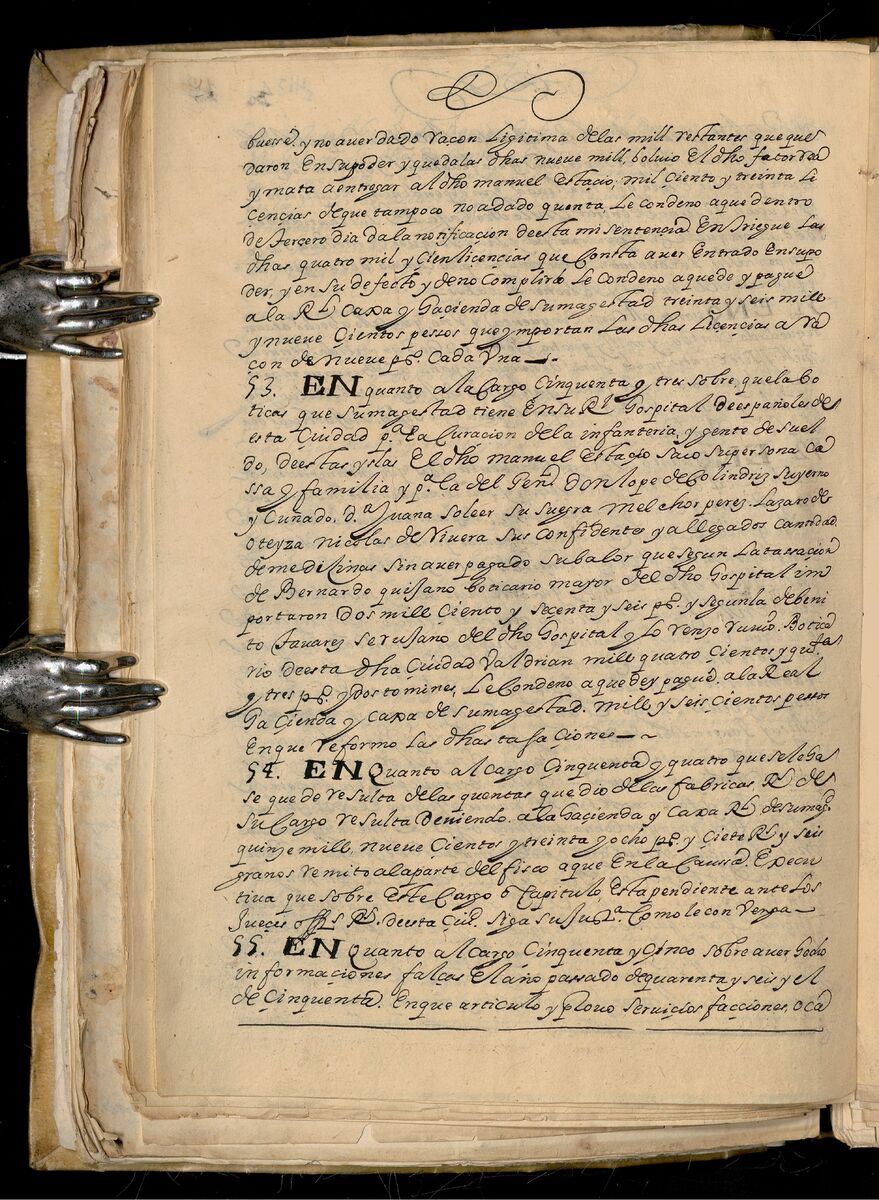 buesse. y no aver dado racon Ligitima de las mill restantes que que
daron En su poder y que da las dhas nueve mill, bolvio El dho, fator vea
y mata a entregar al dho manuel Estacio, mil ciento y treinta Li
cencias de que tampoco no a dado quenta, Le condeno a que dentro
de tercero dia da la notificacion de esta mi sentencia Entriegue Las
dhas quatro mil y Cien licencias que Consta aver Entrado En su po
der, y en su defecto y de no Complirlo Le Condeno a que de y pague
a la Rl. Caxa y Hacienda de su magestad treinta y seis mill
y nueve Cientos pessos que ymportan Las dhas Licencias a Ra
con de Nueve ps. Cada Vna
53. EN quanto a la Cargo Cinquenta y tres sobre, que la bo
ticas que su magestad tiene En su Rl. Hospital de españoles de
esta Ciudad pa. La Curacion de la infanteria, y gente de suel
do, de estas yslas El dho manuel Estacio saco su persona ca
ssa y familia y pa. la del Genl. Don lope de Colindriz su yerno
y Cuñado, D.a Juana soleer su suegra melchor perez. Lazaro de
oteyza nicolas de Rivera sus Confidentes y allegados cantidad
de medicinas sin aver pagado su balor que segun La tassacion
de Bernardo quisano boticario mayor del dho Hospital im
portaron Dos mill Ciento y secenta y seis ps. y segun la de beni
to Tavarez serusano del dho Hospital y Lorenzo Botica
rio de esta dha Ciudad Valdrian mill quatro Cientos y
y tres ps. y dos tomines, Le Condeno a que de y pague, a la Real
Hacienda y Caxa de su magestad. mill y seis cientos pessos
En que reformo Las dhas tasaciones
54. EN Quanto al cargo Cinquenta y quatro que se le ha
se que de resulta de las quentas que dio de las fabricas Rs. de
su Cargo resulta Deviendo. a la hacienda y Caxa Rl. de su mag.
quinze mill, nueve Cientos y treinta y ocho ps. y Ciete Rs. y seis
granos remito a la parte del fisco a que En la Caussa. Execu
tiva que sobre Este Cargo o Capitulo, Esta pendiente ante Los
Jueces offs. Rs. de esta Ciud. siga su Justa. Como le con Venga
55. EN Quanto al Cargo Cinquenta y Cinco sobre aver hecho
informaciones falças El año passado de quarenta y seis y el
de Cinquenta. En que articulo y provo servicios facciones, o ca